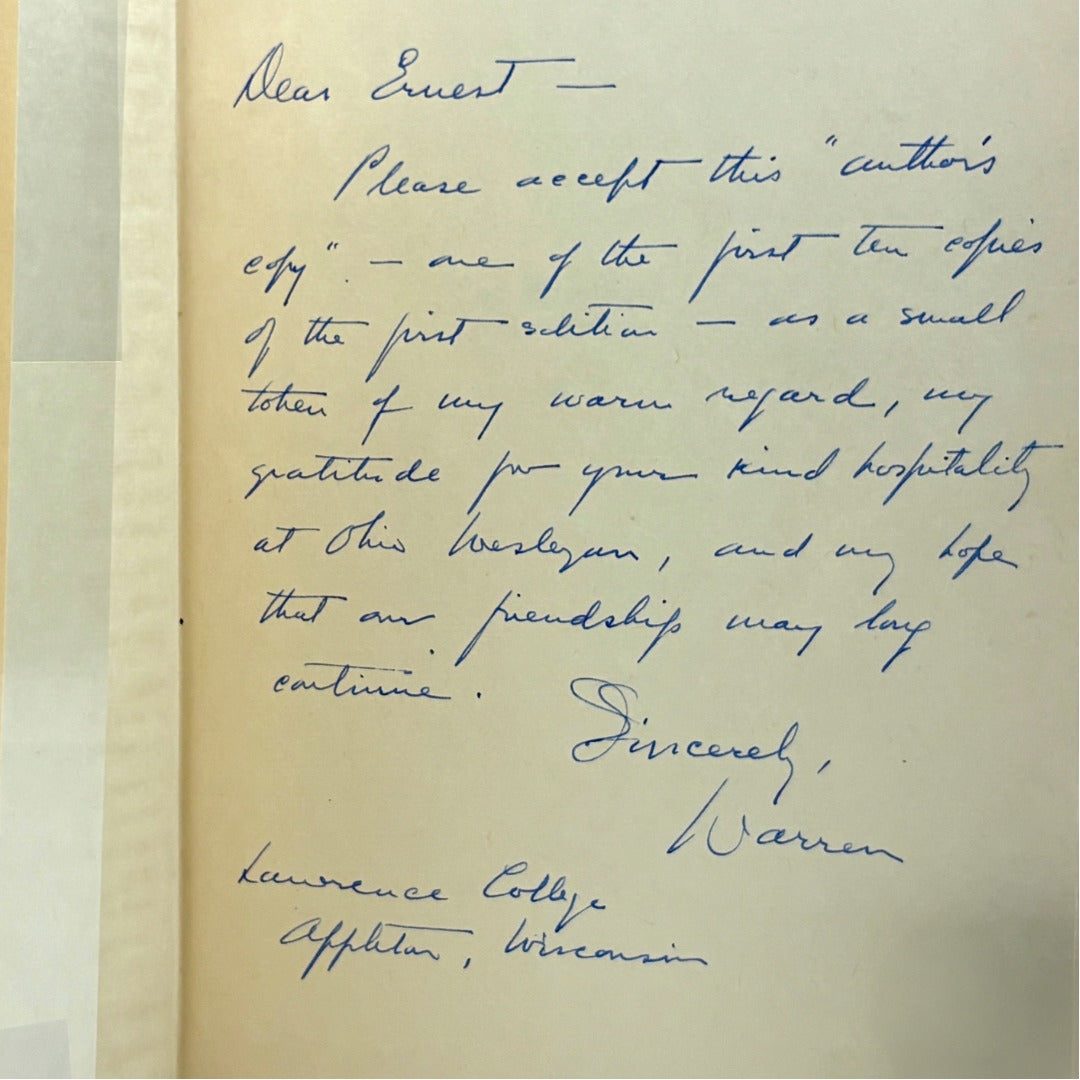 Dear Ernest —
Please accept this "author's
copy" — one of the first ten copies
of the first edition — as a small
token of my warm regard, my
gratitude for your kind hospitality
at Ohio Wesleyan, and my hope
that our friendship may long
continue.
Sincerely,
Warren
Lawrence College
Appleton, Wisconsin